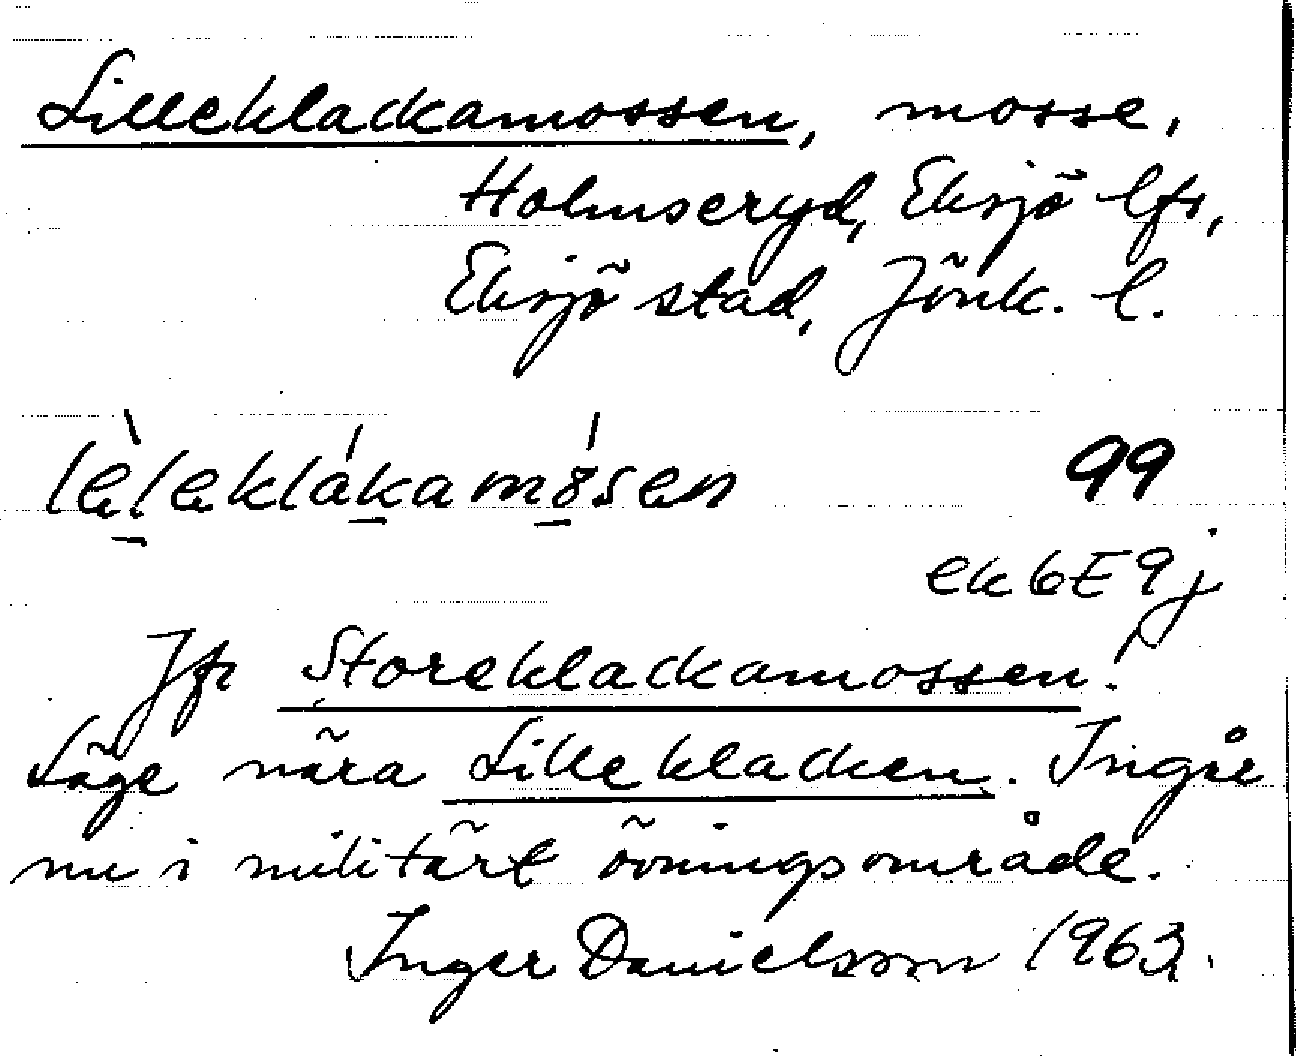 Lilleklackamossen, mosse,
Holmseryd, Eksjö lfs,
Eksjö stad, Jönk. l.
lèleklákamósen 99
ek 6E9j
Jfr Storeklackamossen!
Läge nära Lilleklacken. Ingår
nu i militärt övningsområde.
Inger Danielsson 1963.